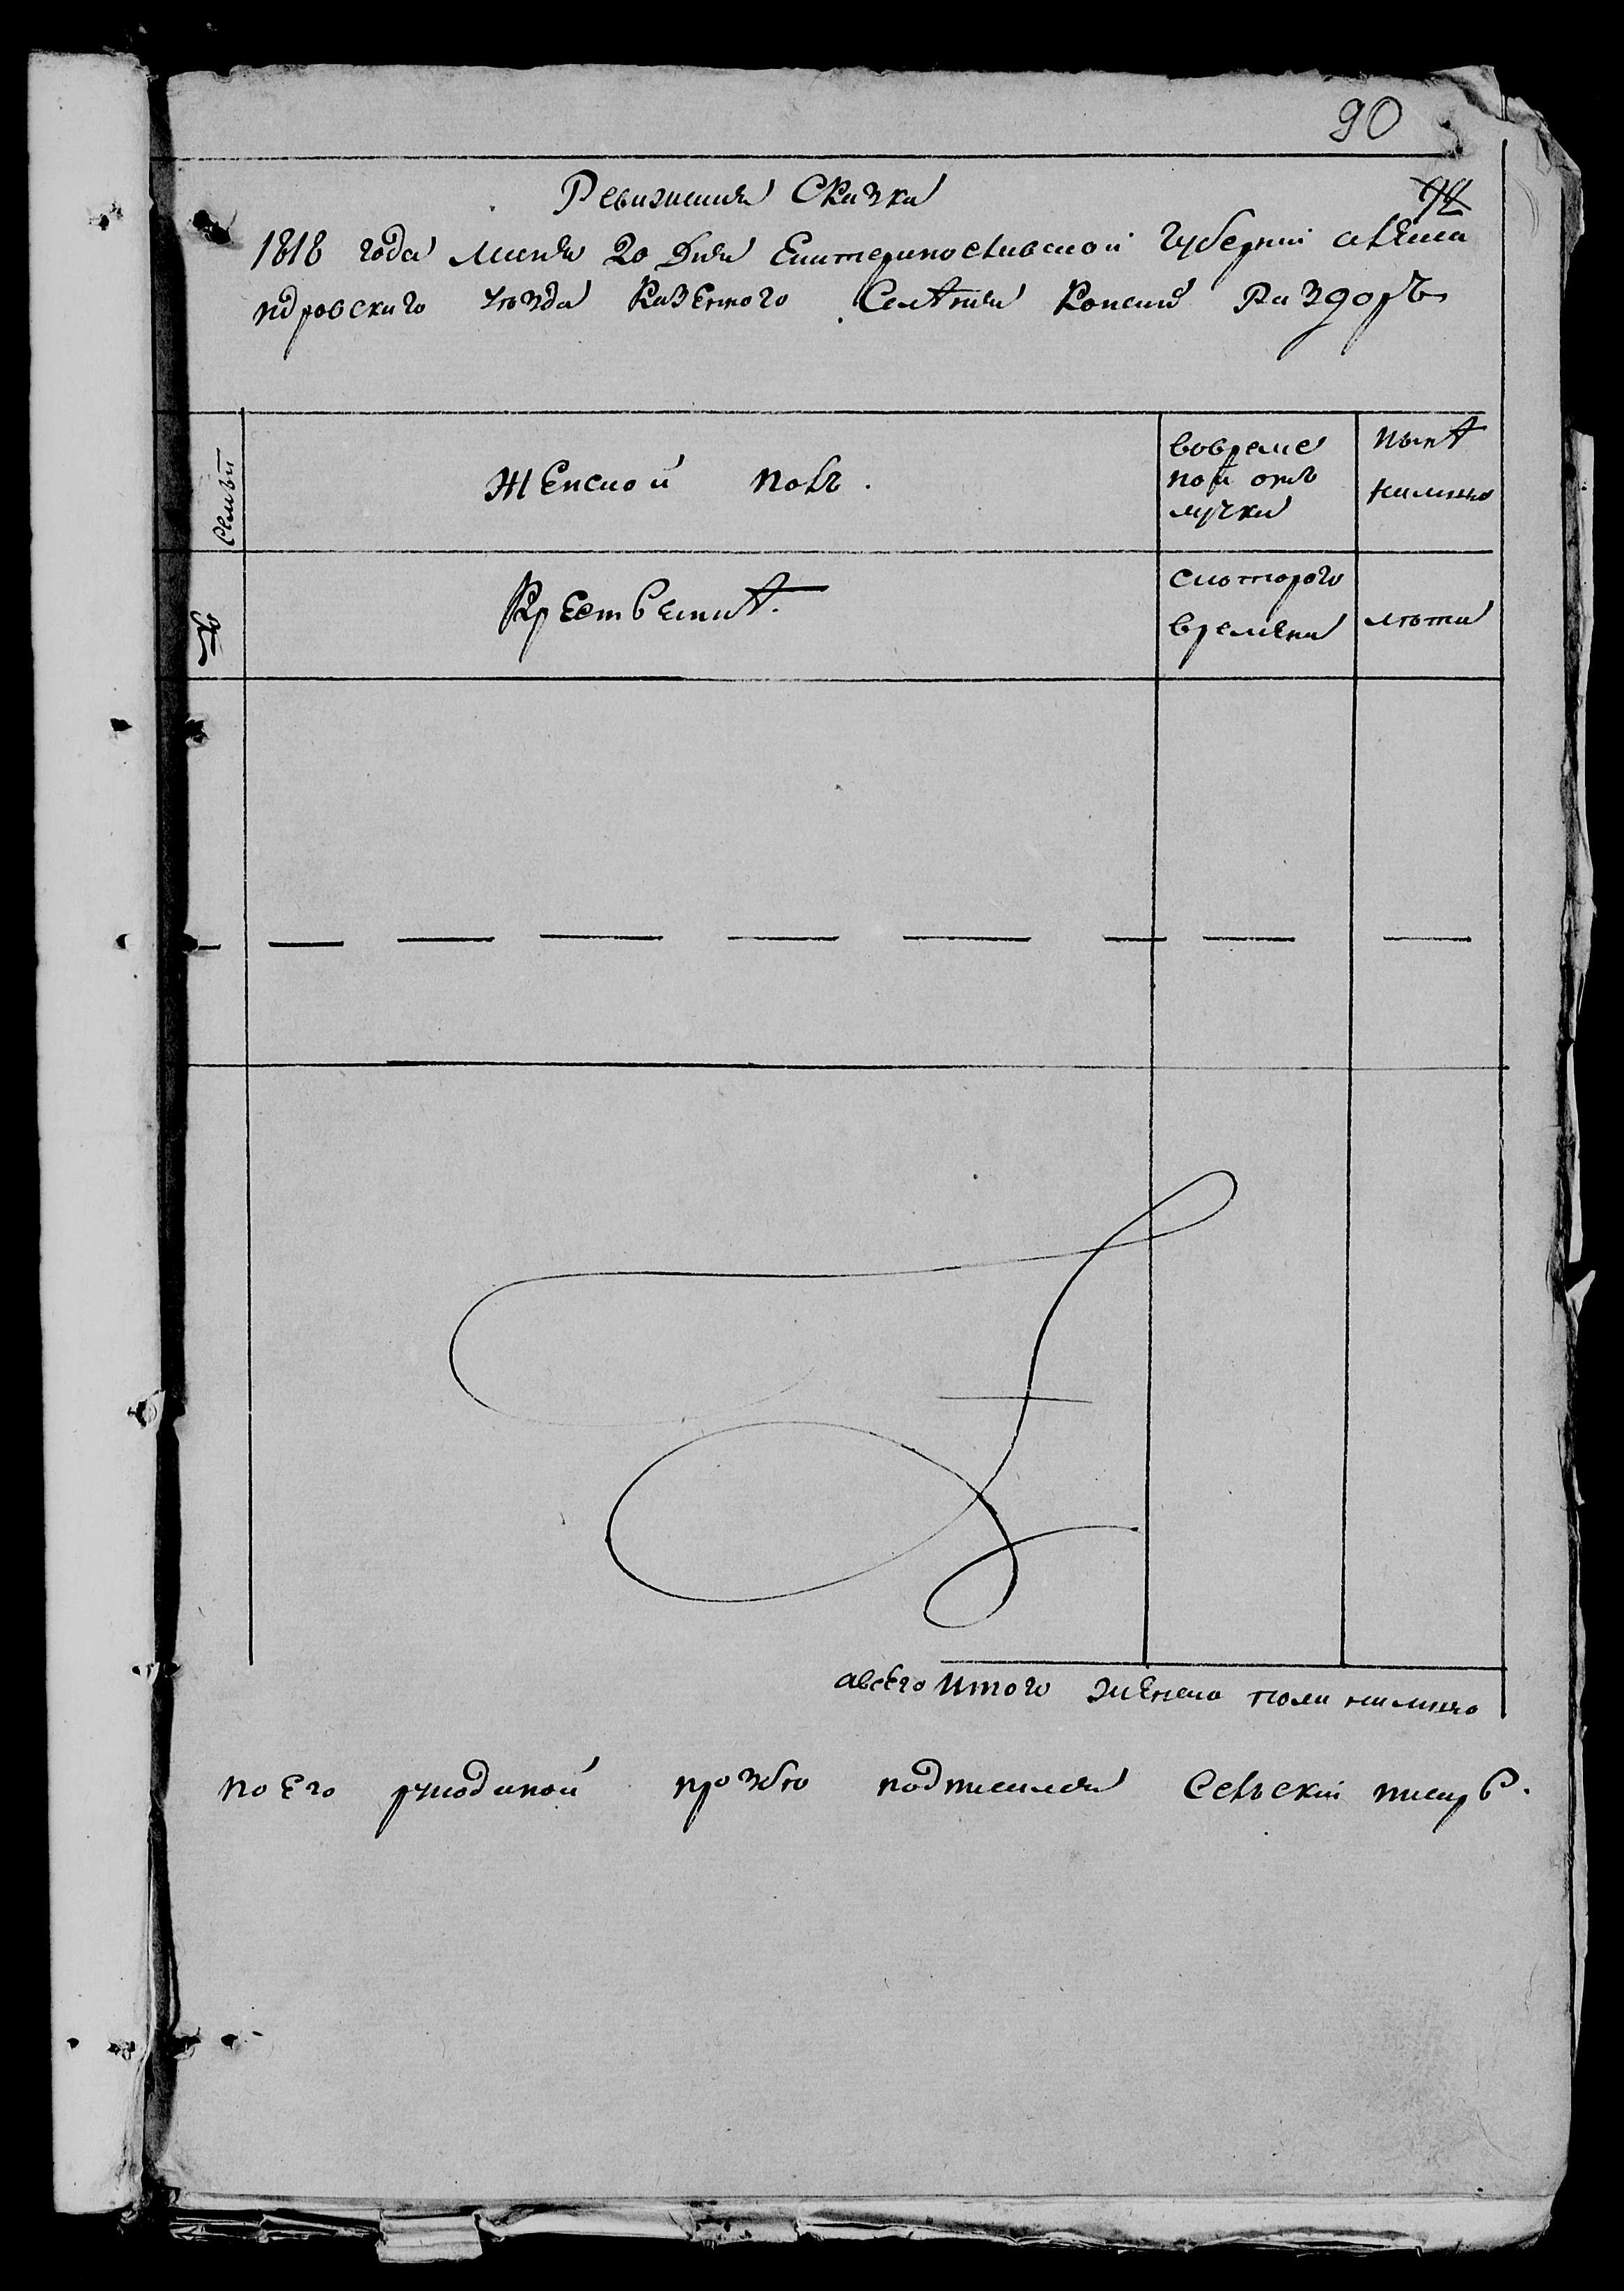 90
Ревизская Сказка
1818 года маия 20 дня Екатеринославской губернии алекса
ндровского уезда казенного Селения Конских Раздоръ
Семьи
Женской полъ.
вовреме
ной отъ
лучки
ныне
налицо
№
Крестьяне.
скоторого
времени
лѣта
авсего итого женска пола налицо
по его рукоданой прозбе подписался Сельскiй писарь.